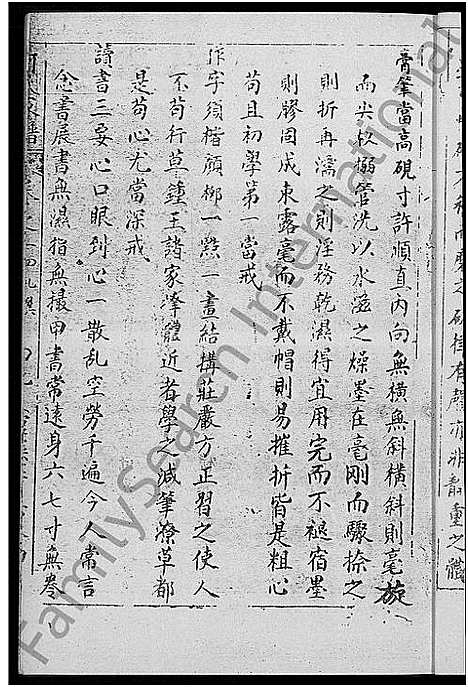 膏筆當高硯寸許順直內向無橫無斜橫斜則毫旋
而尖杈搦管洗以水滋之燥墨在毫剛而驟捺之
則折再濡之則浮務乾濕得宜用完而不褪宿墨
則膠固成束露毫而不戴帽則易摧折皆是粗心
苟且初學第一當戒
作字須楷顏柳一點一畫結搆莊嚴方正習之使人
不苟行草鍾王諸家筆體近者學之減筆潦草都
是苟心尤當深戒
讀書三要心口眼到心一散乱空勞千遍今人常言
念書展書無濕指無撮甲書常遠身六七寸無卷
FamilySearch International